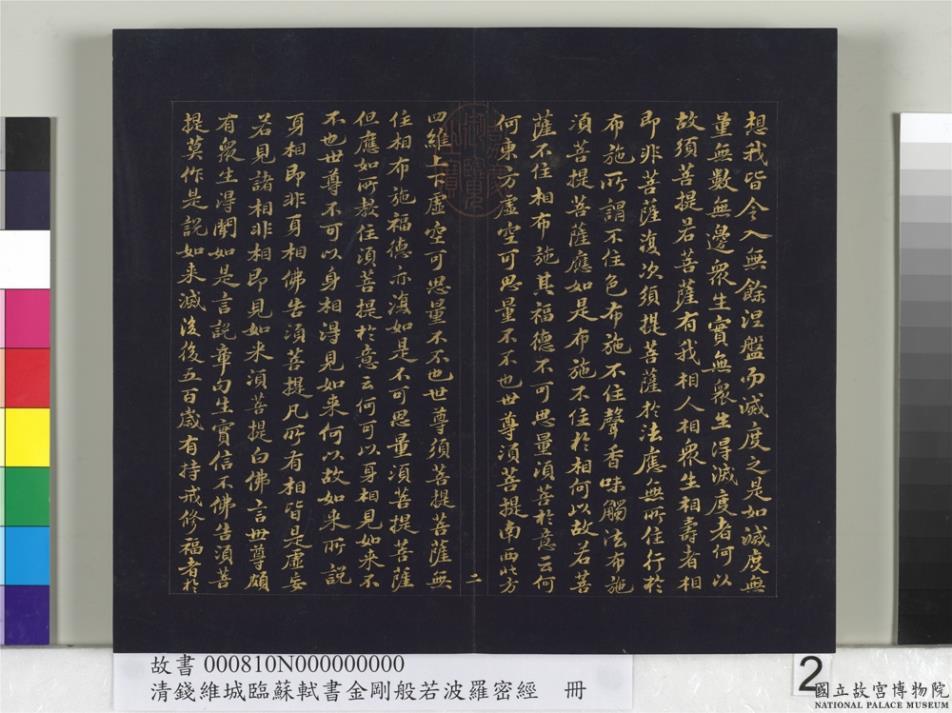 想我皆令入無餘涅盤而滅度之是如滅度無
量無數無邊眾生實無眾生得滅度者何以
故須菩提若菩薩有我相人相眾生相壽者相
即非菩薩復次須提菩薩於法應無所住行於
布施所謂不住色布施不住聲香味觸法布施
須菩提菩薩應如是布施不住於相何以故若菩
薩不住相布施其福德不可思量須菩於意云何
何東方虛空可思量不不也世尊須菩提南西北方
四維上下虛空可思量不不也世尊須菩提菩薩無
住相布施福德亦復如是不可思量須菩提菩薩
但應如所教住須菩提於意云何可以身相見如来不
不也世尊不可以身相得見如来何以故如来所說
身相即非身相佛告須菩提凡所有相皆是虛妄
若見諸相非相即見如来須菩提白佛言世尊頗
有眾生得聞如是言說章句生實信不佛告須菩
提莫作是說如来滅後後五百歲有持戒修福者於
二
故書 000810N000000000
清錢維城臨蘇軾書金剛般若波羅密經 冊
2
國立故宮博物院
NATIONAL PALACE MUSEUM